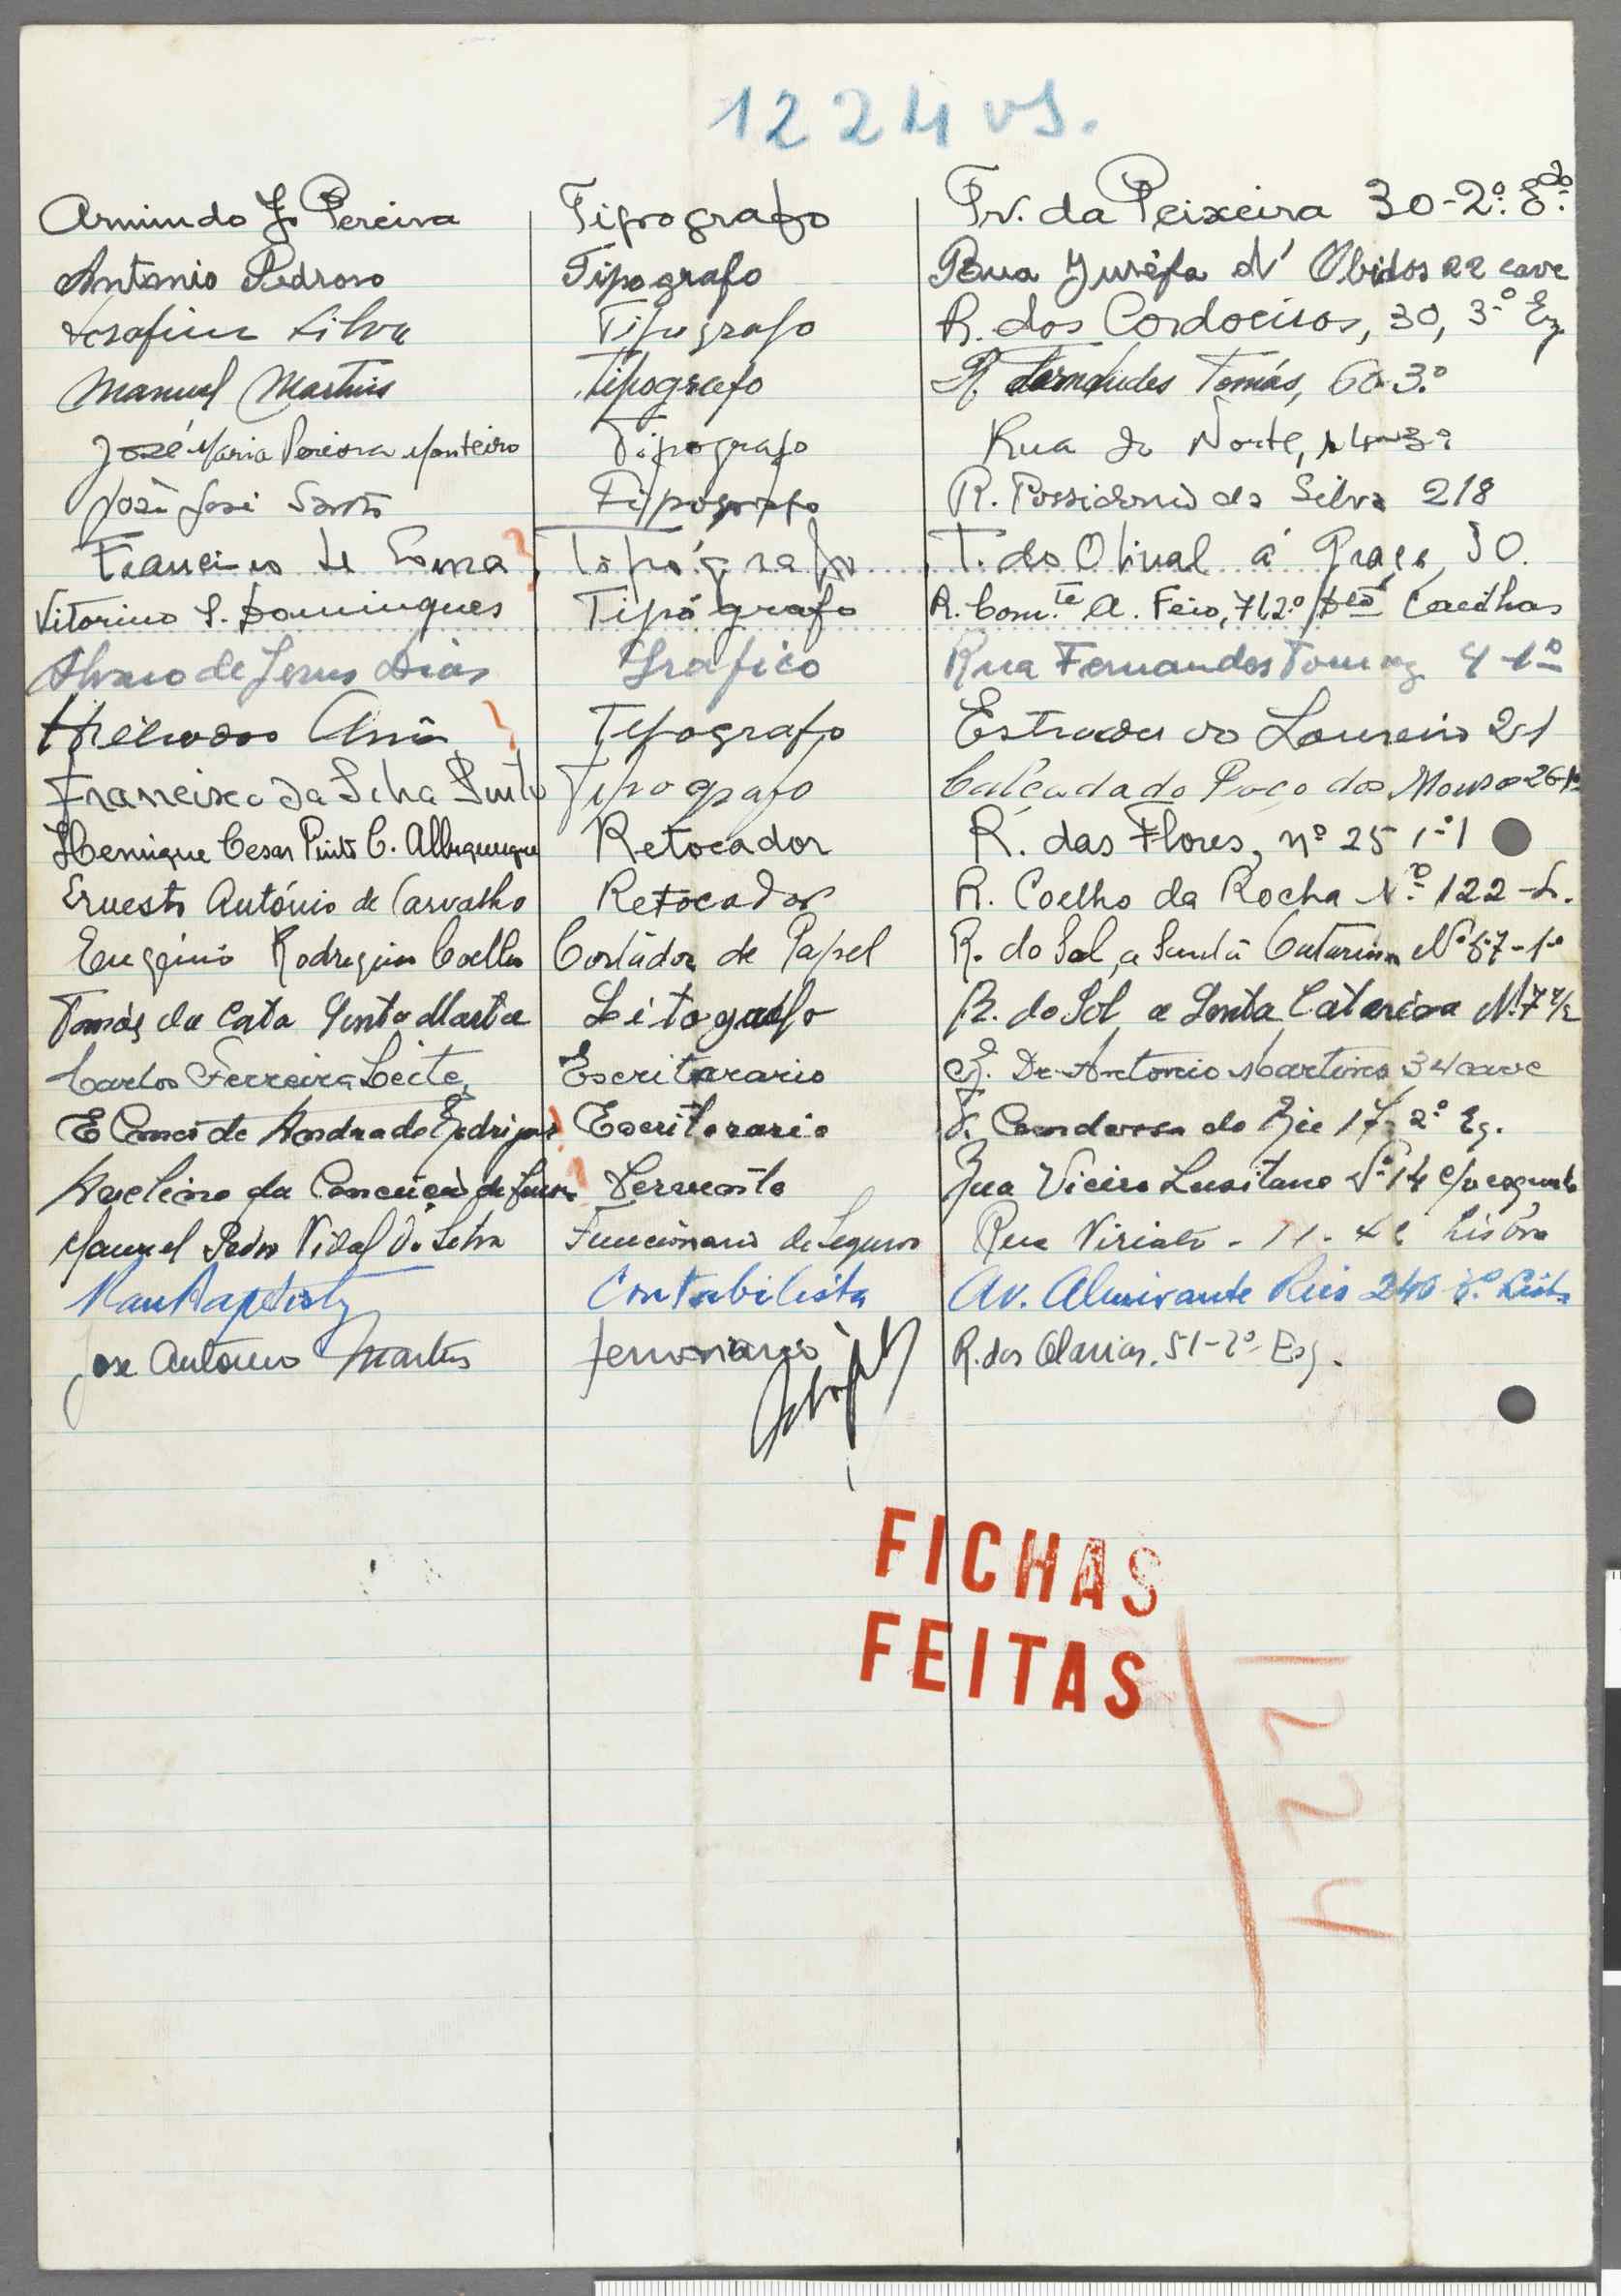 1224 vs.
Armindo J. Pereira Tipografo Tv. da Peixeira 30-2º. E.do
Antonio Pedroso Tipografo Rua Juséfa d'Obidos 22 cave
Serafim Silva Tipografo R. dos Cordoeiros, 30, 3º Eq.
Manuel Martins Tipografo R. Fernandes Tomás, 60-3.º
José Maria Pereira Monteiro Tipografo Rua do Norte, 14-3º
José José Santos Tipografo R. Possidonio da Silva 218
Francisco de Tipógrafo T. do Olival á Graça, 30.
Vitorino S. Domingues Tipógrafo R. Com.te A. Feio, 71 2.º Cacilhas
Alvaro de Jesus Dias Grafico Rua Fernandes Tomaz 4-1º
Tipografo Estrada do Loureiro 21
Francisco da Silva Pinto Tipografo Calçada do Poço dos Mouros 26-1º
Henrique Cesar Pinto C. Albuquerque Retocador R. das Flores, nº 25 1º
Ernesto António de Carvalho Retocador R. Coelho da Rocha N.º 122-L.
Eugénio Rodrigues Coelho Cortador de Papel R. do Sol, a Santa Catarina Nº 67-1º
Tomás da Cata Santa Marta Litografo R. do Sol a Santa Catarina Nº 7
Carlos Ferreira Leite Escriturario R. Dr. Antonio Martins 34 cave
de Andrade Rodrigues Escriturario do 17, 2º Eq.
Avelino da Conceição de Servente Rua Vieira Lusitano Nº 14
Manuel Pedro Vidal da Silva Funcionario de Seguros Rua Viriato - 11 - Lisboa
Contabilista Av. Almirante Reis 240
José António Martins ferroviario R. das Olarias, 51-2º Esq.
FICHAS
FEITAS
1224